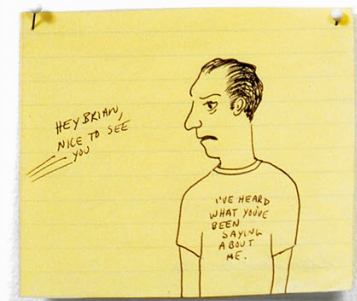 HEY BRIAN,
NICE TO SEE
YOU
I'VE HEARD
WHAT YOU'VE
BEEN
SAYING
ABOUT
ME.